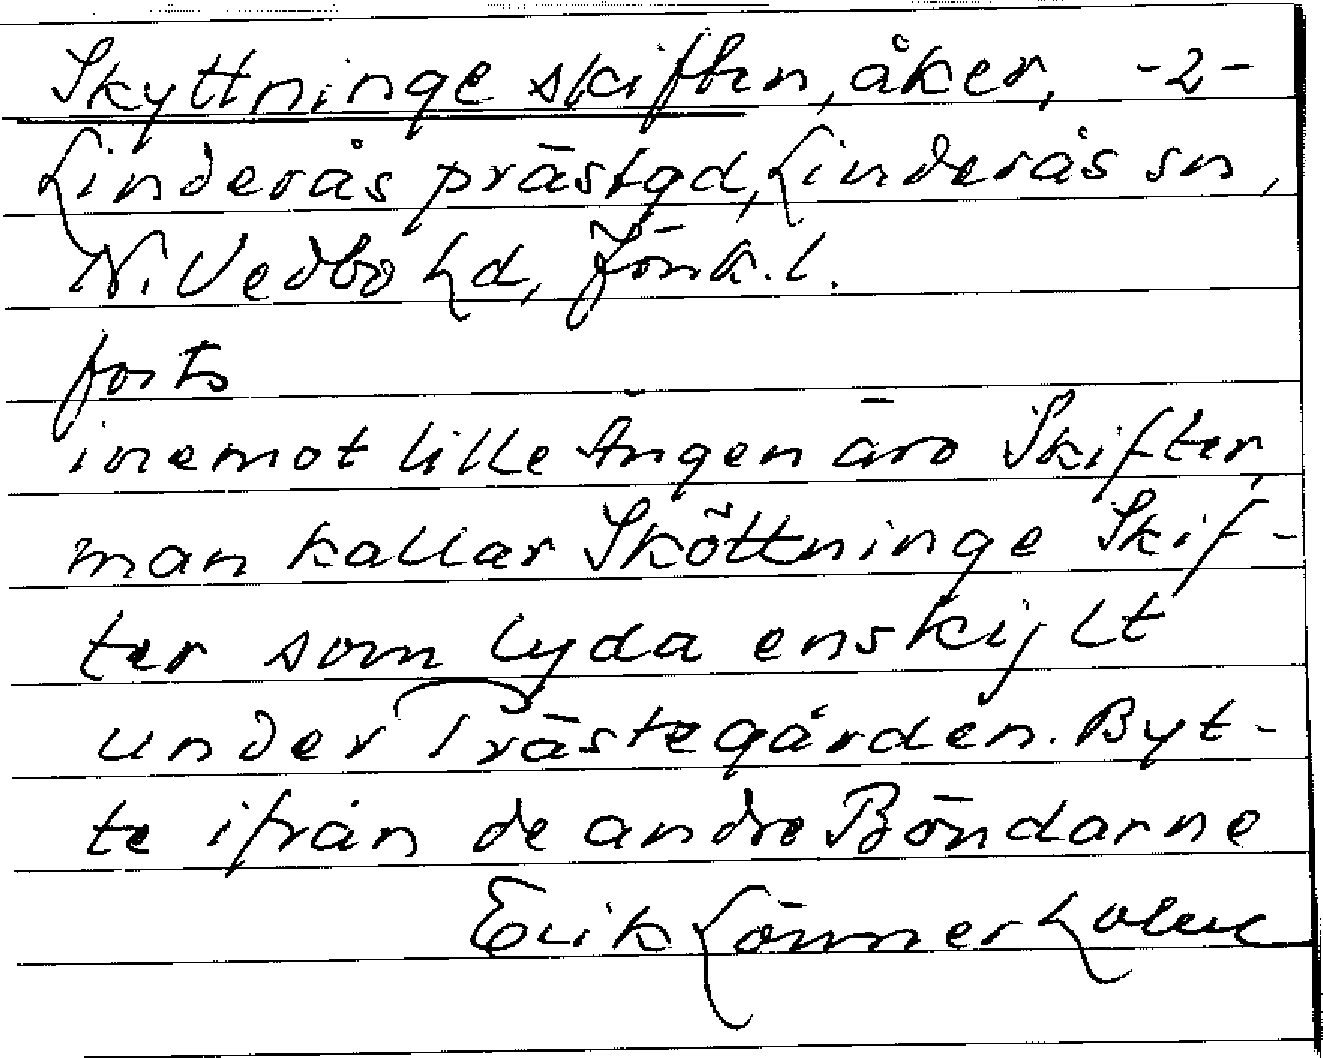 Skyttninge skiften, åker, -2-
Linderås prästgd, Linderås sn,
N. Vedbo hd, Jönk. l.
forts
inemot lille Ängen äro Skifter,
man kallar Sköttninge Skif-
ter som lyda enskijlt
under Prästegården. Byt-
te ifrån de andre Böndarne
Erik Lönnerholm